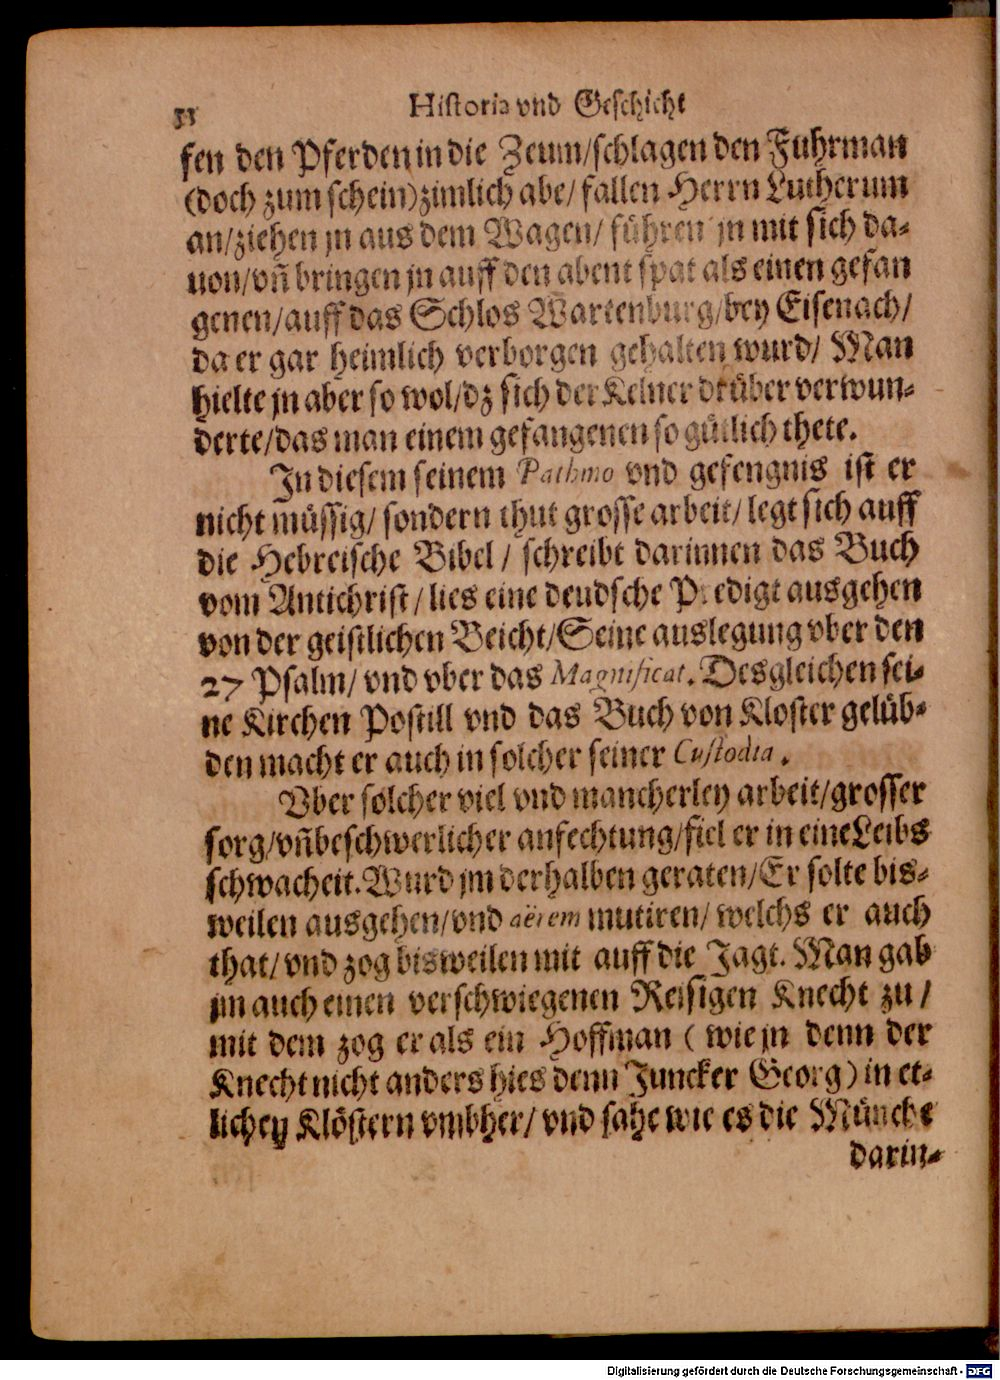 31
Historia vnd Geschicht
fen den Pferden in die Zeum/schlagen den Fuhrman
(doch zum schein) zimlich abe/ fallen Herrn Lutherum
an/ziehen jn aus dem Wagen/ führen jn mit sich da-
uon/vñ bringen jn auff den abent spat als einen gefan
genen/auff das Schlos Wartenburg/bey Eisenach/
da er gar heimlich verborgen gehalten wurd/ Man
hielte jn aber so wol/dz sich der Kelner drüber verwun-
derte/das man einem gefangenen so gütlich thete.
In diesem seinem Pathmo vnd gefengnis ist er
nicht müssig/ sondern thut grosse arbeit/ legt sich auff
die Hebreische Bibel / schreibt darinnen das Buch
vom Antichrist/ lies eine deudsche Predigt ausgehen
von der geistlichen Beicht/Seine auslegung vber den
27 Psalm/ vnd vber das Magnificat. Desgleichen sei-
ne Kirchen Postill vnd das Buch von Kloster gelüb-
den macht er auch in solcher seiner Custodia.
Vber solcher viel vnd mancherley arbeit/grosser
sorg/vñ beschwerlicher anfechtung/fiel er in eine Leibs
schwacheit. Wurd jm derhalben geraten/Er solte bis-
weilen ausgehen/vnd aërem mutiren/ welchs er auch
that/ vnd zog bisweilen mit auff die Jagt. Man gab
jm auch einen verschwiegenen Reisigen Knecht zu /
mit dem zog er als ein Hoffman ( wie jn denn der
Knecht nicht anders hies denn Juncker Georg) in et-
lichen Klöstern vmbher/ vnd sahe wie es die Münche
darin-
Digitalisierung gefördert durch die Deutsche Forschungsgemeinschaft - DFG